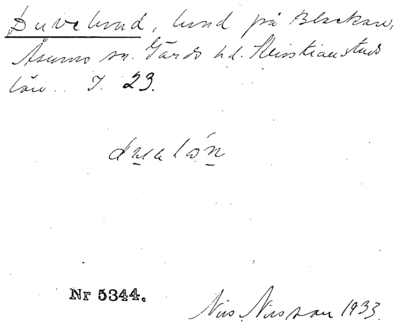 Duvelund, lund på Blackan,
Åsums sn. Gärds hd. Kristianstads
län. I. 23.
Nr 5344.
Nils Nilsson 1933.